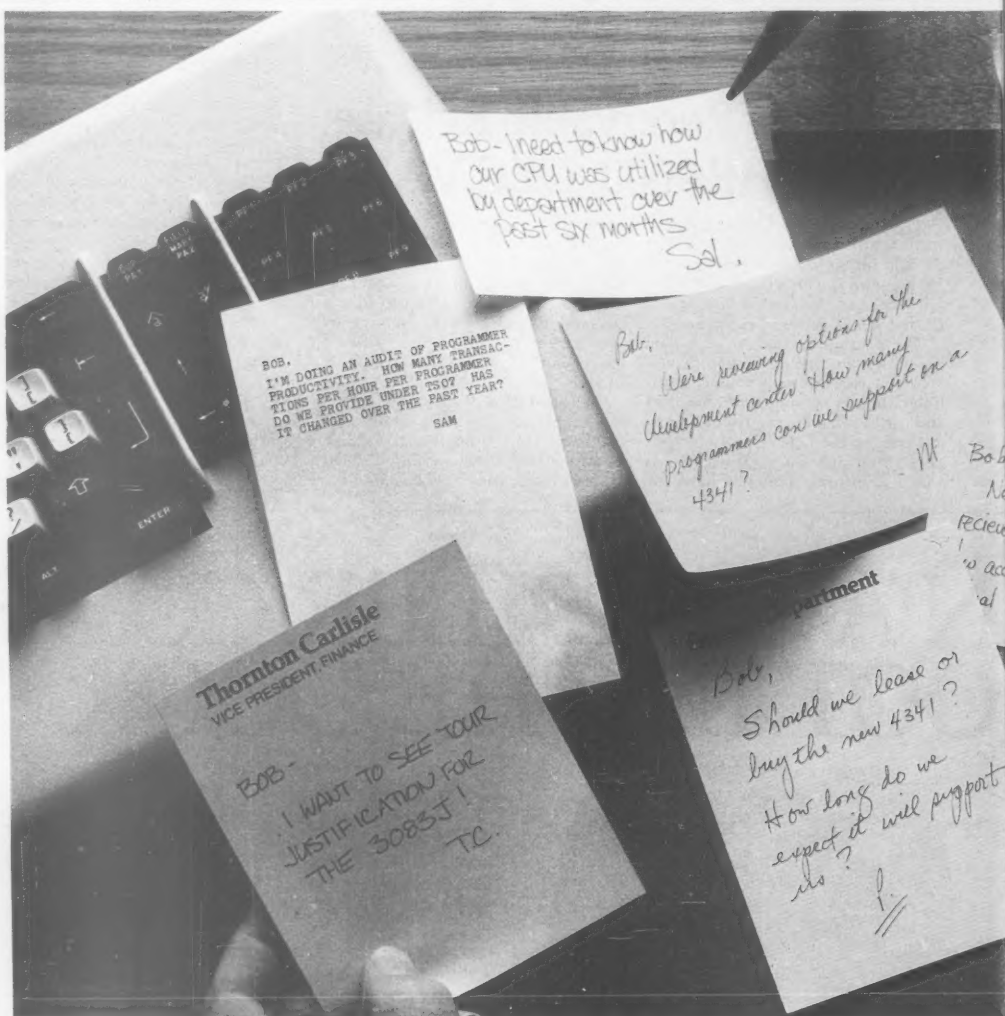 Bob - I need to know how
our CPU was utilized
by department over the
past six months
Sal.
BOB,
I'M DOING AN AUDIT OF PROGRAMMER
PRODUCTIVITY. HOW MANY TRANSAC-
TIONS PER HOUR PER PROGRAMMER
DO WE PROVIDE UNDER TSO? HAS
IT CHANGED OVER THE PAST YEAR?
SAM
Bob,
We're reviewing options for the
development center How many
programmers can we support on a
4341?
- M
Thornton Carlisle
VICE PRESIDENT, FINANCE
BOB -
I WANT TO SEE YOUR
JUSTIFICATION FOR
THE 3083J!
TC.
Bob,
Should we lease or
buy the new 4341?
How long do we
expect it will support
us?
P.
Bob
PF2
PF3
PF4
PF5
PF6
PF9
ALT
ENTER